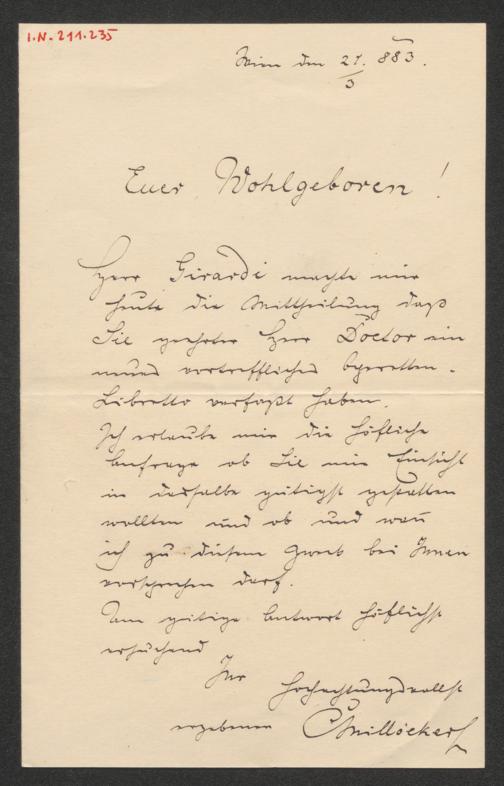 I.N. 211.235
Wien den 21/3. 883.
Euer Wohlgeboren!
Herr Girardi machte mir
heute die Mittheilung daß
Sie geehrter Herr Doctor ein
neues vortreffliches Operetten-
Libretto verfaßt haben.
Ich erlaube mir die höfliche
Anfrage ob Sie mir Einsicht
in dasselbe gütigst gestatten
wollten und ob und wan̄
ich zu diesem Zweck bei Ihnen
vorsprechen darf.
Um gütige Antwort höflichst
ersuchend
Ihr hochachtungsvollst
ergebener CMillöcker